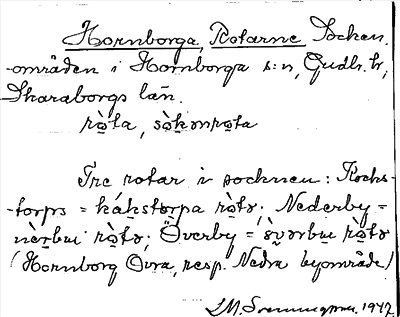 Hornborga, Rotarne Socken.
-områden i Hornborga s:n, Gudh. hr,
Skaraborgs län.
rò̱ta, sò̱kənro̱ta
Tre rotar i socknen: Kocks-
-torps = kákstɔrpa rò̱tə; Nederby =
nèrbui rò̱tə; Överby = ö̀vərbui rò̱tə
(Hornborg Övra, resp. Nedra byområde)
1947.